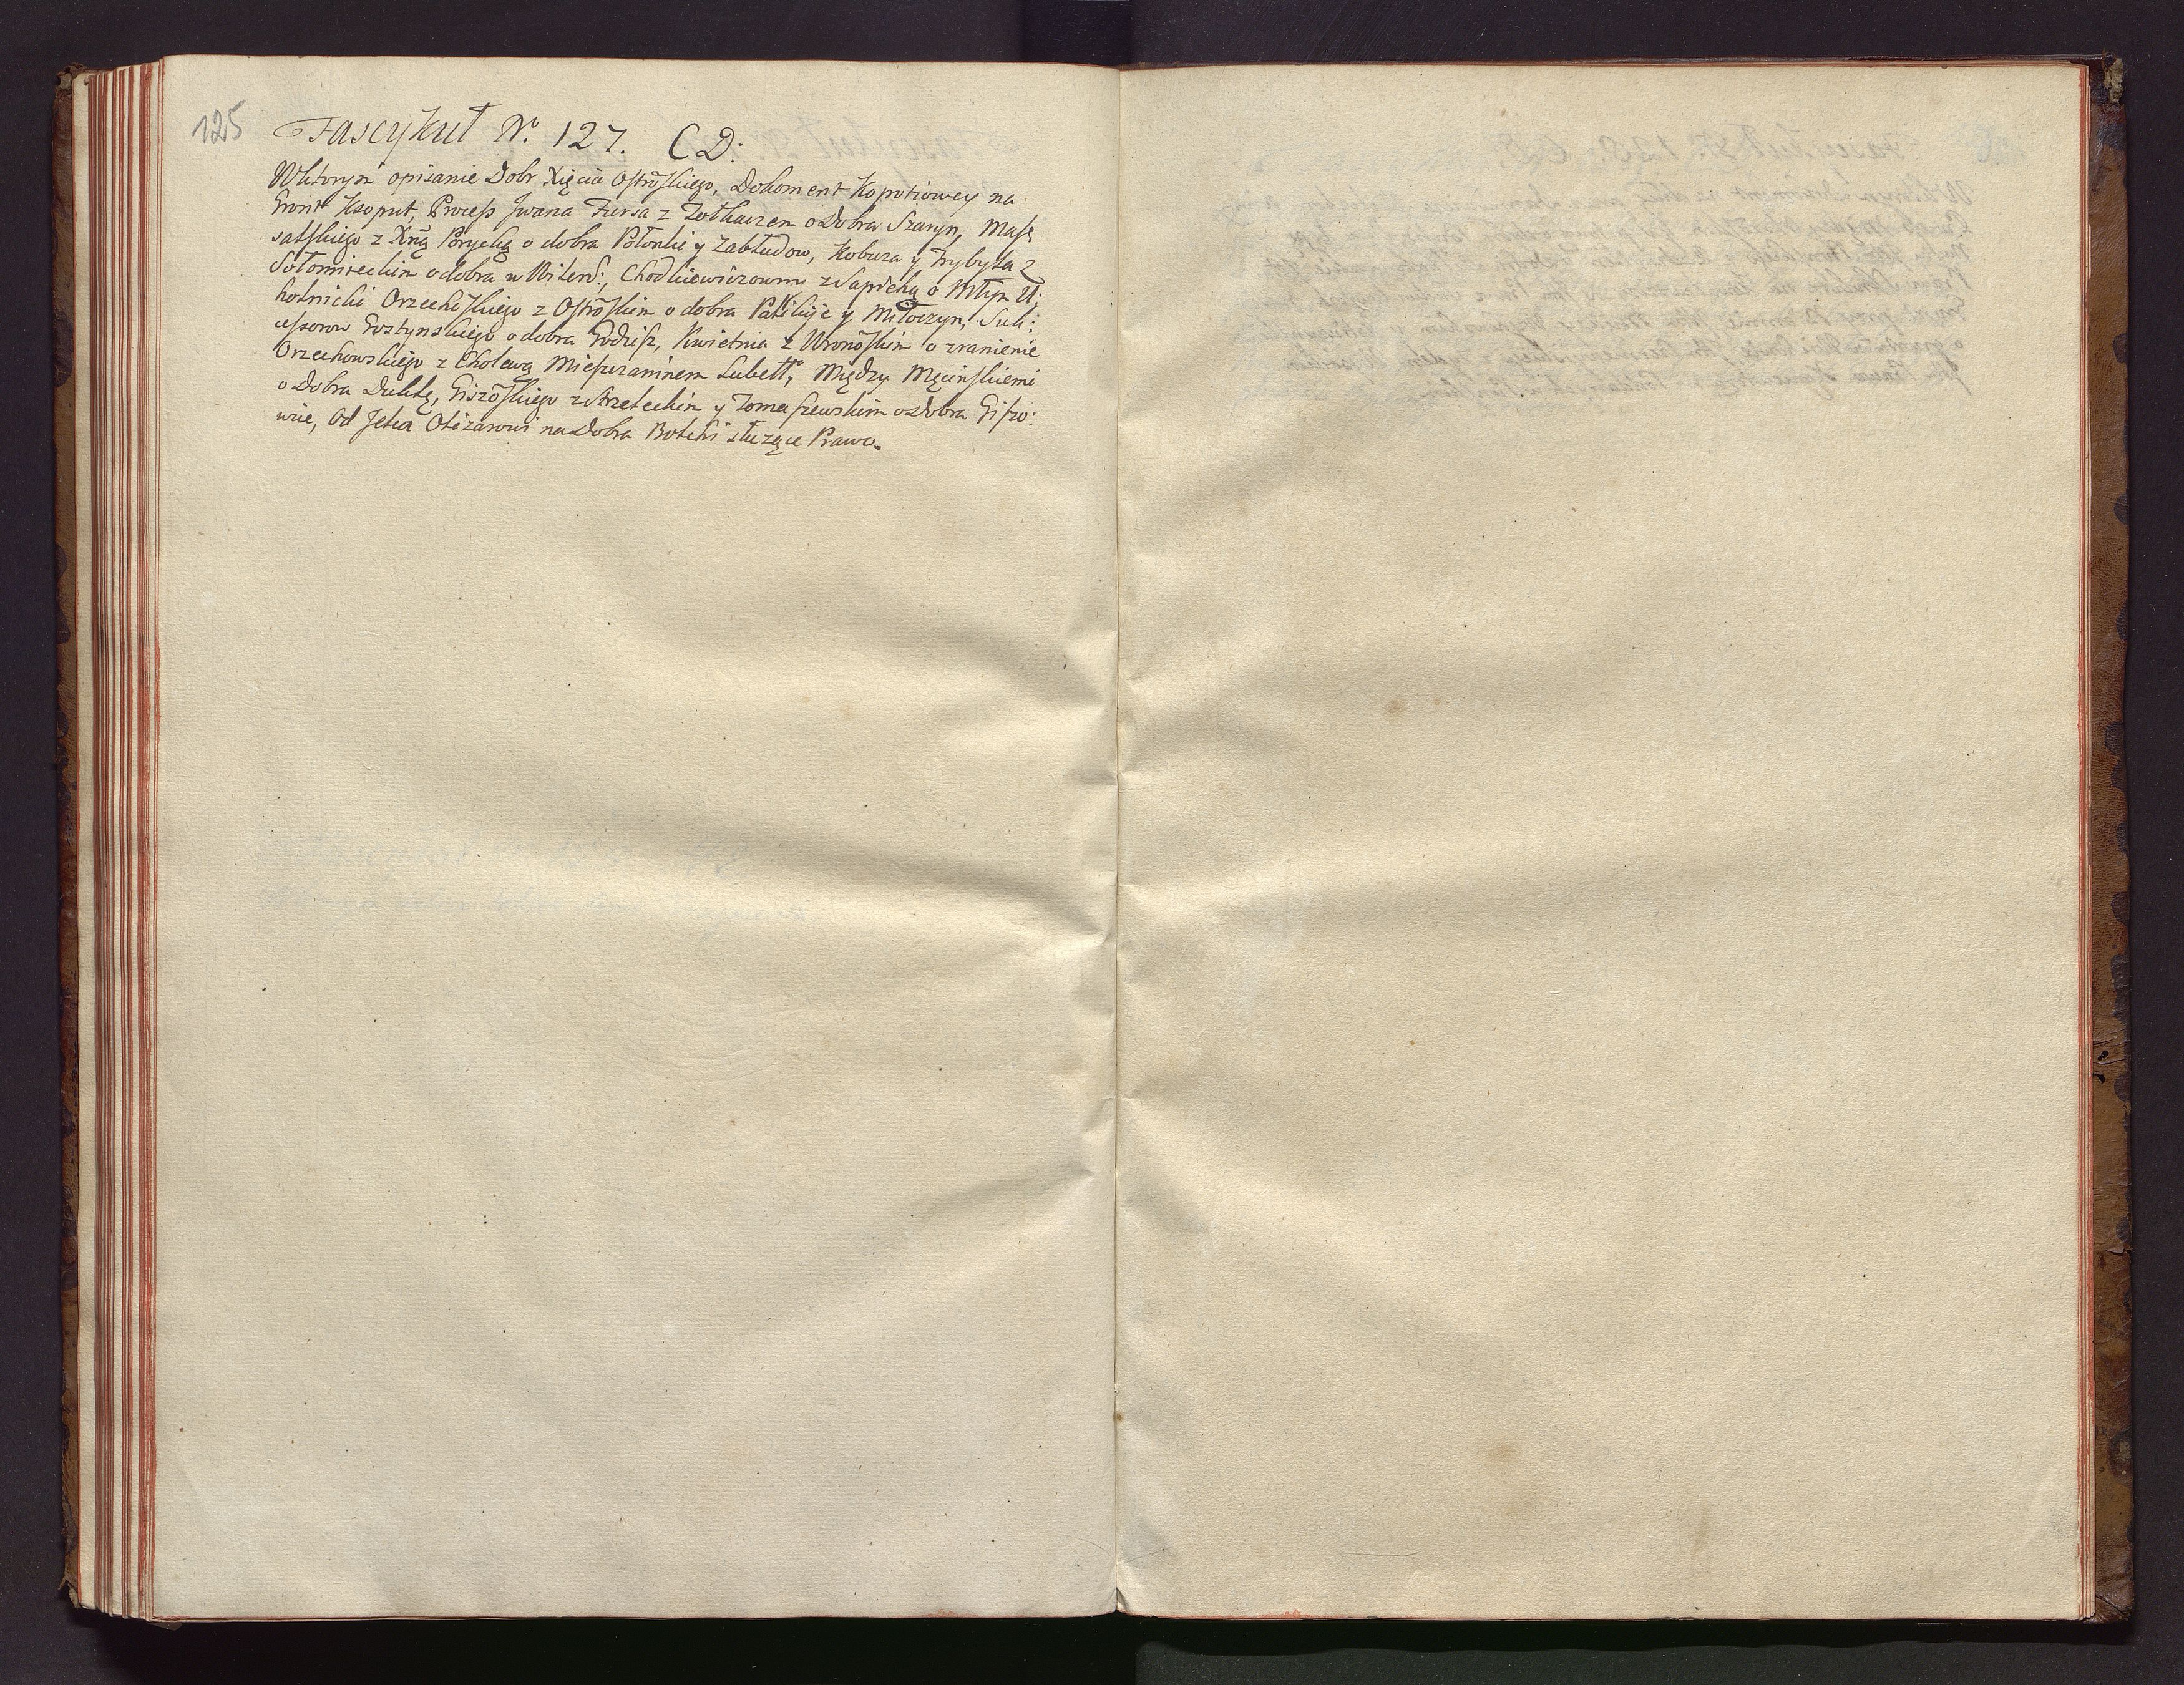 125
Fascykuł N.º 127. CD:
W ktorym opisanie Dobr Xięcia Ostrõskiego, Dokoment Kopotiowey na
Gront Ksoput, Process Jwana Fursa z Zotkaczem o Dobra Szaryn, Mass:
salskiego z Xną Porycką o dobra Połonki y Zabłudow, Kobuza y Trybyła z
Sołomireckim o dobra w Witens:, Chodkiewiczowny z Sapiehą o Młyn U:
holnicki Orzechõskiego z Ostrõskim o dobra Patikije y Miłoczyn, Suk:
cessorow Gostynskiego o dobra Godzisz, Kwietnia z Wronõskim o zranienie
Orzechowskiego z Cholewą Mieszczaninem Lubell:, Między Męcinskiemi
o Dobra Duklę, Giszõskiego z Strzeleckim y Tomaszewskim o Dobra Giszo:
wie, Od Jelca Olizarowi na Dobra Botchi służące Prawo.